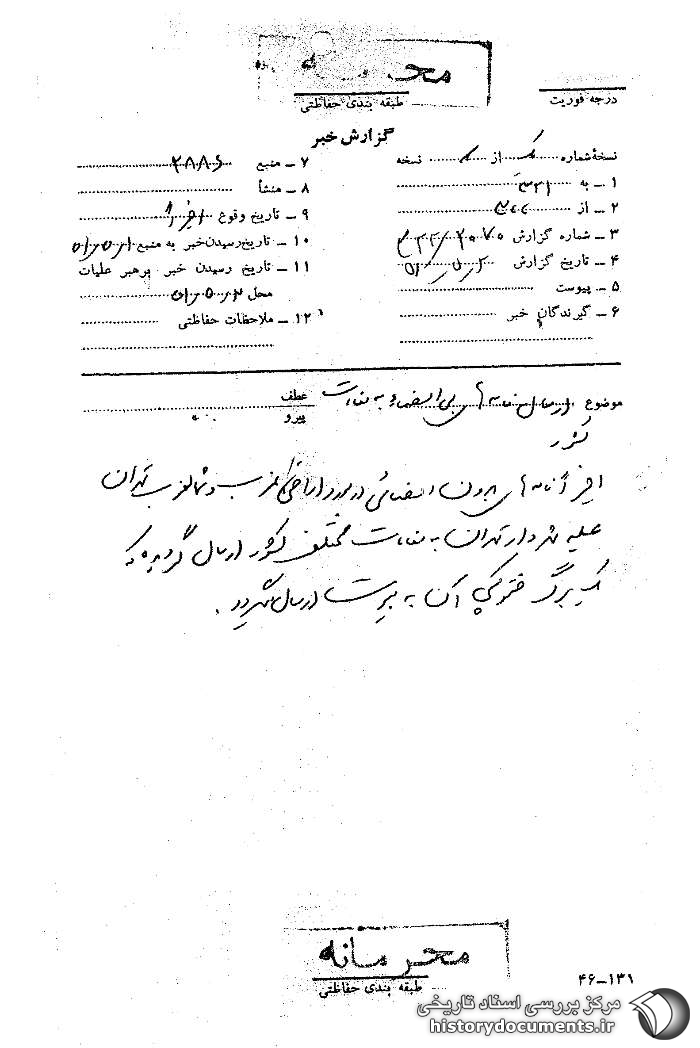 محرمانه
طبقه بندی حفاظتی
درجه فوریت
گزارش خبر
نسخهٔ شماره یک از یک نسخه
۱ ــ به ۳۴۱
۲ ــ از
۳ ــ شماره گزارش
۴ ــ تاریخ گزارش
۵ ــ پیوست
۶ ــ گیرندگان خبر
۷ ــ منبع ۲۸۸۶
۸ ــ منشأ
۹ ــ تاریخ وقوع اخیراً
۱۰ ــ تاریخ رسیدن خبر به منبع
۱۱ ــ تاریخ رسیدن خبر برهبر عملیات
محل
۱۲ ــ ملاحظات حفاظتی
موضوع ارسال نامه های بی امضاء به مقامات
عطف
پیرو
کشور
اخیراً نامه های بدون امضائی در مورد اراضی غرب و شمالغرب تهران
علیه شهردار تهران به مقامات مختلف کشور ارسال گردیده که
یک برگ فتوکپی آن به پیوست ارسال میگردد.
محرمانه
طبقه بندی حفاظتی
۴۶-۱۳۱
مرکز بررسی اسناد تاریخی
historydocuments.ir